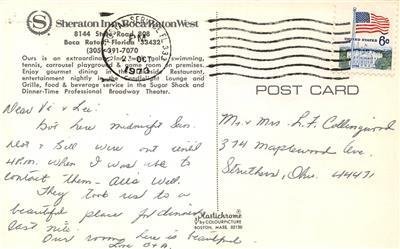 Sheraton Inn Boca Raton West
8144 State Road 808
Boca Raton, Florida 33432
(305) 391-7070
Ours is an extraordinary Inn with pool, swimming,
tennis, carousel playground & game room on premises.
Enjoy gourmet dining in the Restaurant,
entertainment nightly in the Lounge and
Grille, food & beverage service in the Sugar Shack and
Dinner-Time Professional Broadway Theater.
PM
2 OCT
1973
UNITED STATES
6c
POST CARD
Dear Vi & Lee.
Got here midnight Sun.
& Bill were out until
4 P.M. when I was able to
contact them - all's well.
They took us to a
beautiful place for dinner
last nite.
Our room here is beautiful
Love
Plastichrome
by COLOURPICTURE
BOSTON, MASS. 02130
Mr & Mrs. L. F. Collingwood
374 Maplewood Ave.
Struthers, Ohio 44471